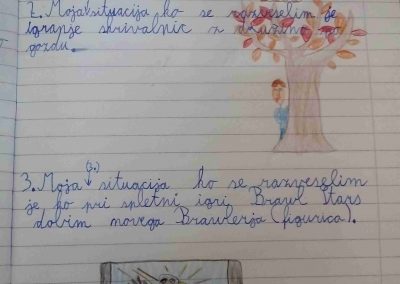 2. Moja situacija ko se razveselim je
igranje skrivalnic z družino po
gozdu.
(3.)
3. Moja situacija ko se razveselim
je ko pri spletni igri Brawl Stars
dobim novega Brawlerja (figurica).